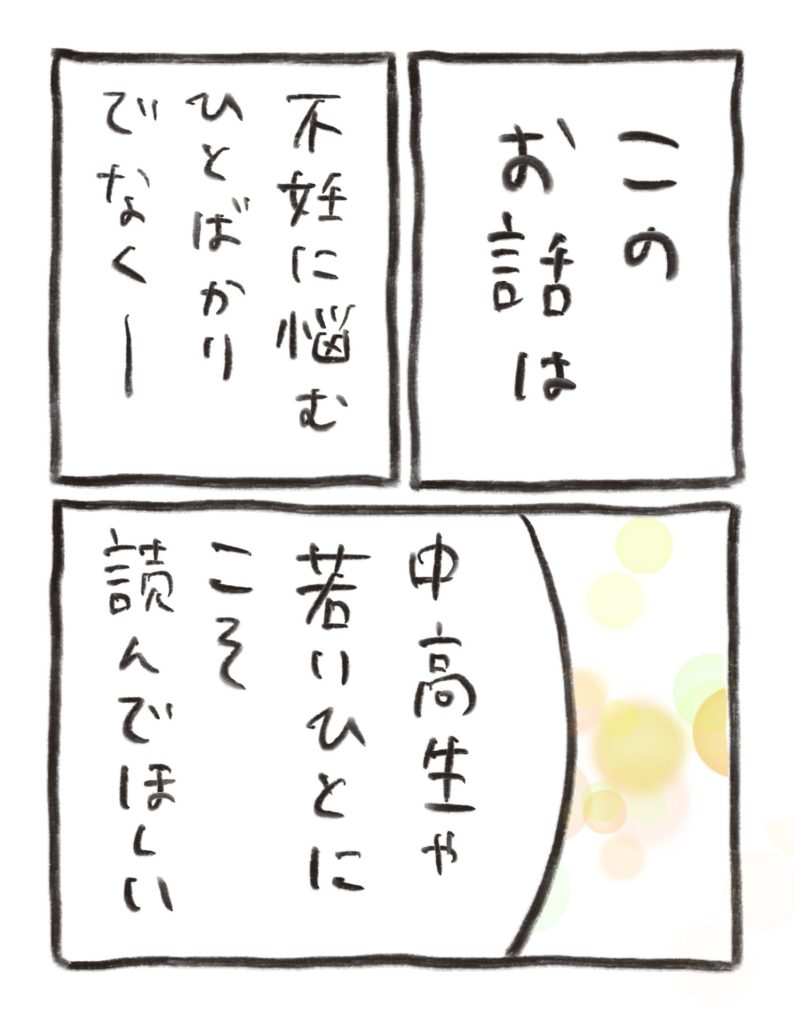 この
お話は
不妊に悩む
ひとばかり
でなく―
中高生や
若いひとに
こそ
読んでほしい